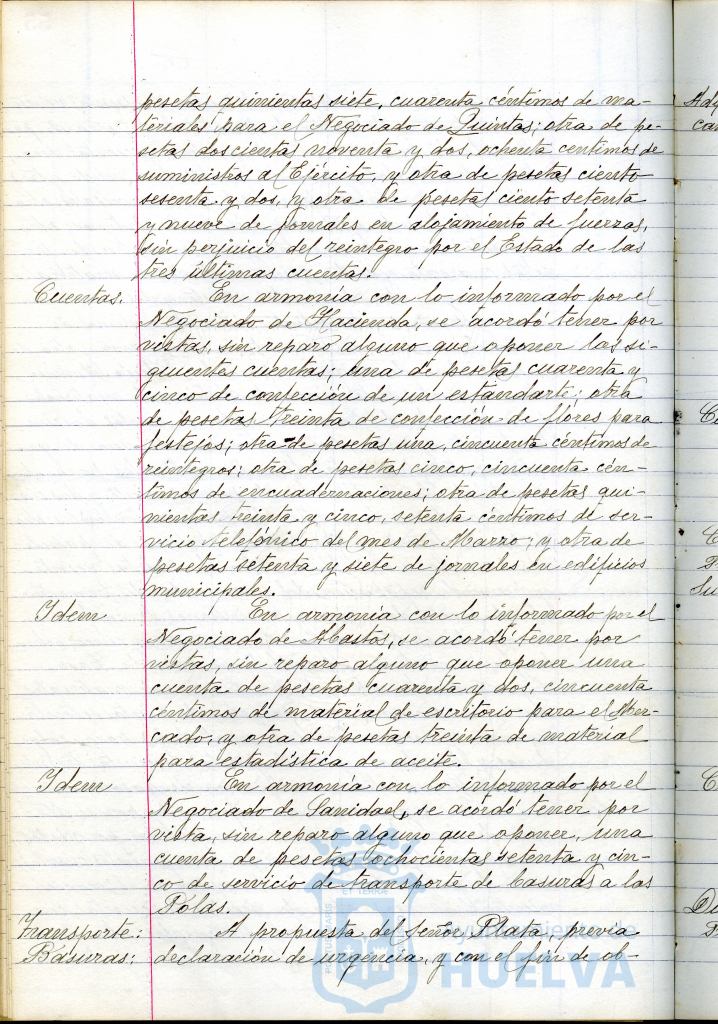 pesetas quinientas siete, cuarenta céntimos de ma-
teriales para el Negociado de Quintas; otra de pe-
setas doscientas noventa y dos, ochenta centimos de
suministros al Ejército, y otra de pesetas ciento
sesenta y dos, y otra de pesetas ciento setenta
y nueve de jornales en alojamiento de fuerzas,
sin perjuicio del reintegro por el Estado de las
tres últimas cuentas.
Cuentas. En armonía con lo informado por el
Negociado de Hacienda, se acordó tener por
vistas, sin reparo alguno que oponer las si-
guientes cuentas; una de pesetas cuarenta y
cinco de confección de un estandarte; otra
de pesetas treinta de confección de flores para
festejos; otra de pesetas una, cincuenta céntimos de
reintegros; otra de pesetas cinco, cincuenta cén-
timos de encuadernaciones; otra de pesetas qui-
nientas treinta y cinco, setenta céntimos de ser-
vicio telefónico del mes de Marzo; y otra de
pesetas setenta y siete de jornales en edificios
municipales.
Idem En armonía con lo informado por el
Negociado de Abastos, se acordó tener por
vistas, sin reparo alguno que oponer una
cuenta de pesetas cuarenta y dos, cincuenta
céntimos de material de escritorio para el Mer-
cado, y otra de pesetas treinta de material
para estadística de aceite.
Idem En armonía con lo informado por el
Negociado de Sanidad, se acordó tener por
vista, sin reparo alguno que oponer, una
cuenta de pesetas ochocientas setenta y cin-
co de servicio de transporte de basuras a las
Polas.
Transporte: A propuesta del señor Plata, previa
Basuras: declaración de urgencia, y con el fin de ob-
Ayuntamiento de
HUELVA